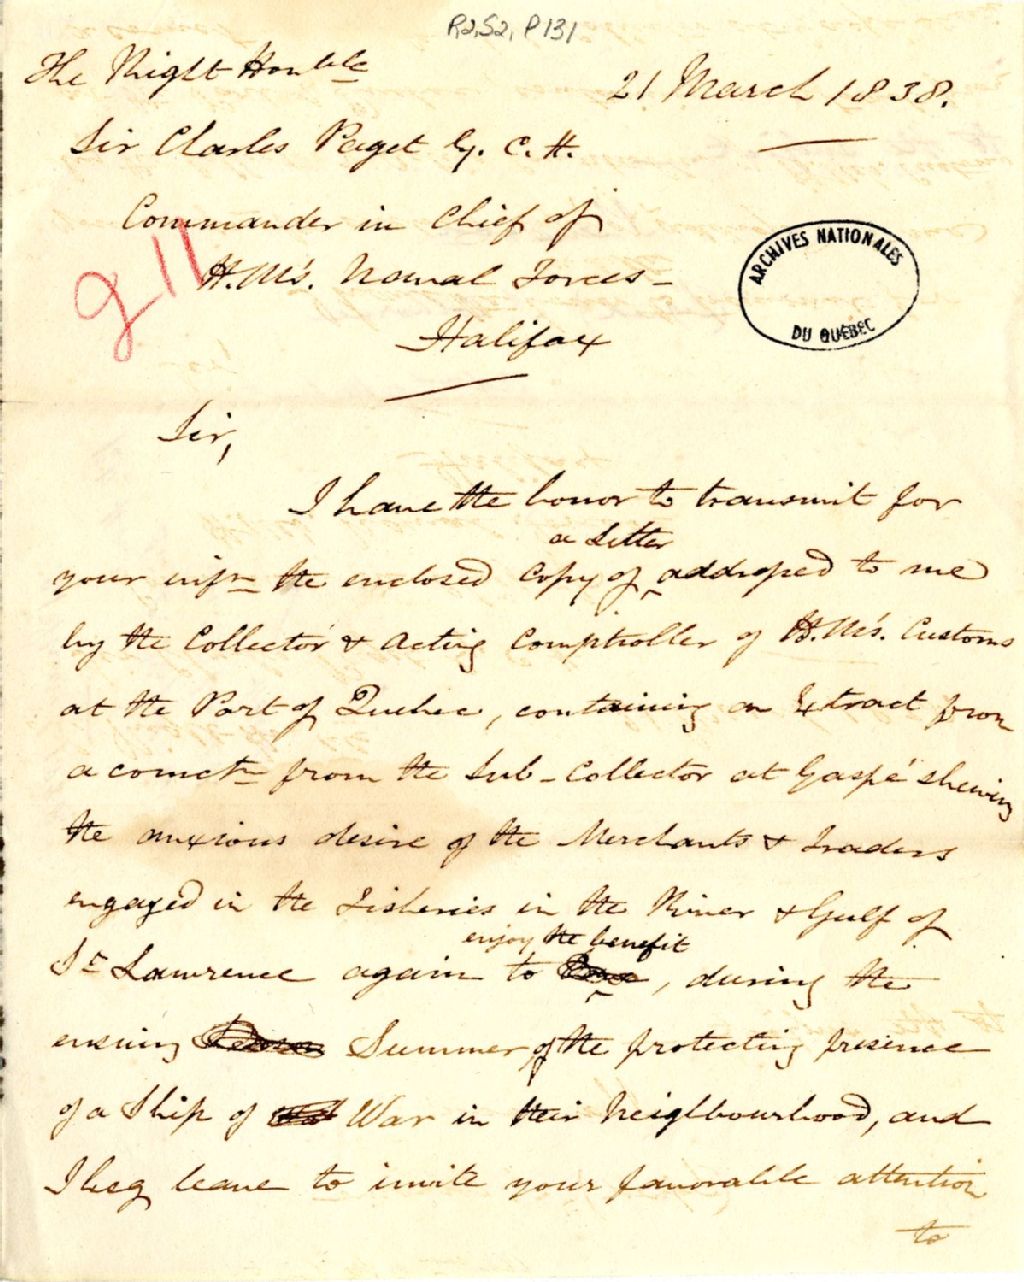 R2, S2, P131
The Right Honble
21 March 1838.
Sir Charles Paget G. C. H.
Commander in Chief of
H.M's. Naval Forces -
Halifax
211
ARCHIVES NATIONALES
DU QUÉBEC
Sir,
I have the honor to transmit for
a Letter
your infn the enclosed Copy of addressed to me
by the Collector & Acting Comptroller of H.M's. Customs
at the Port of Quebec, containing an Extract from
a comctn from the Sub-Collector at Gaspé shewing
the anxious desire of the Merchants & Traders
engaged in the Fisheries in the River & Gulf of
enjoy the benefit
St Lawrence again to , during the
ensuing Summer of the protecting presence
of a Ship of War in their Neighbourhood, and
I beg leave to invite your favorable attention
to